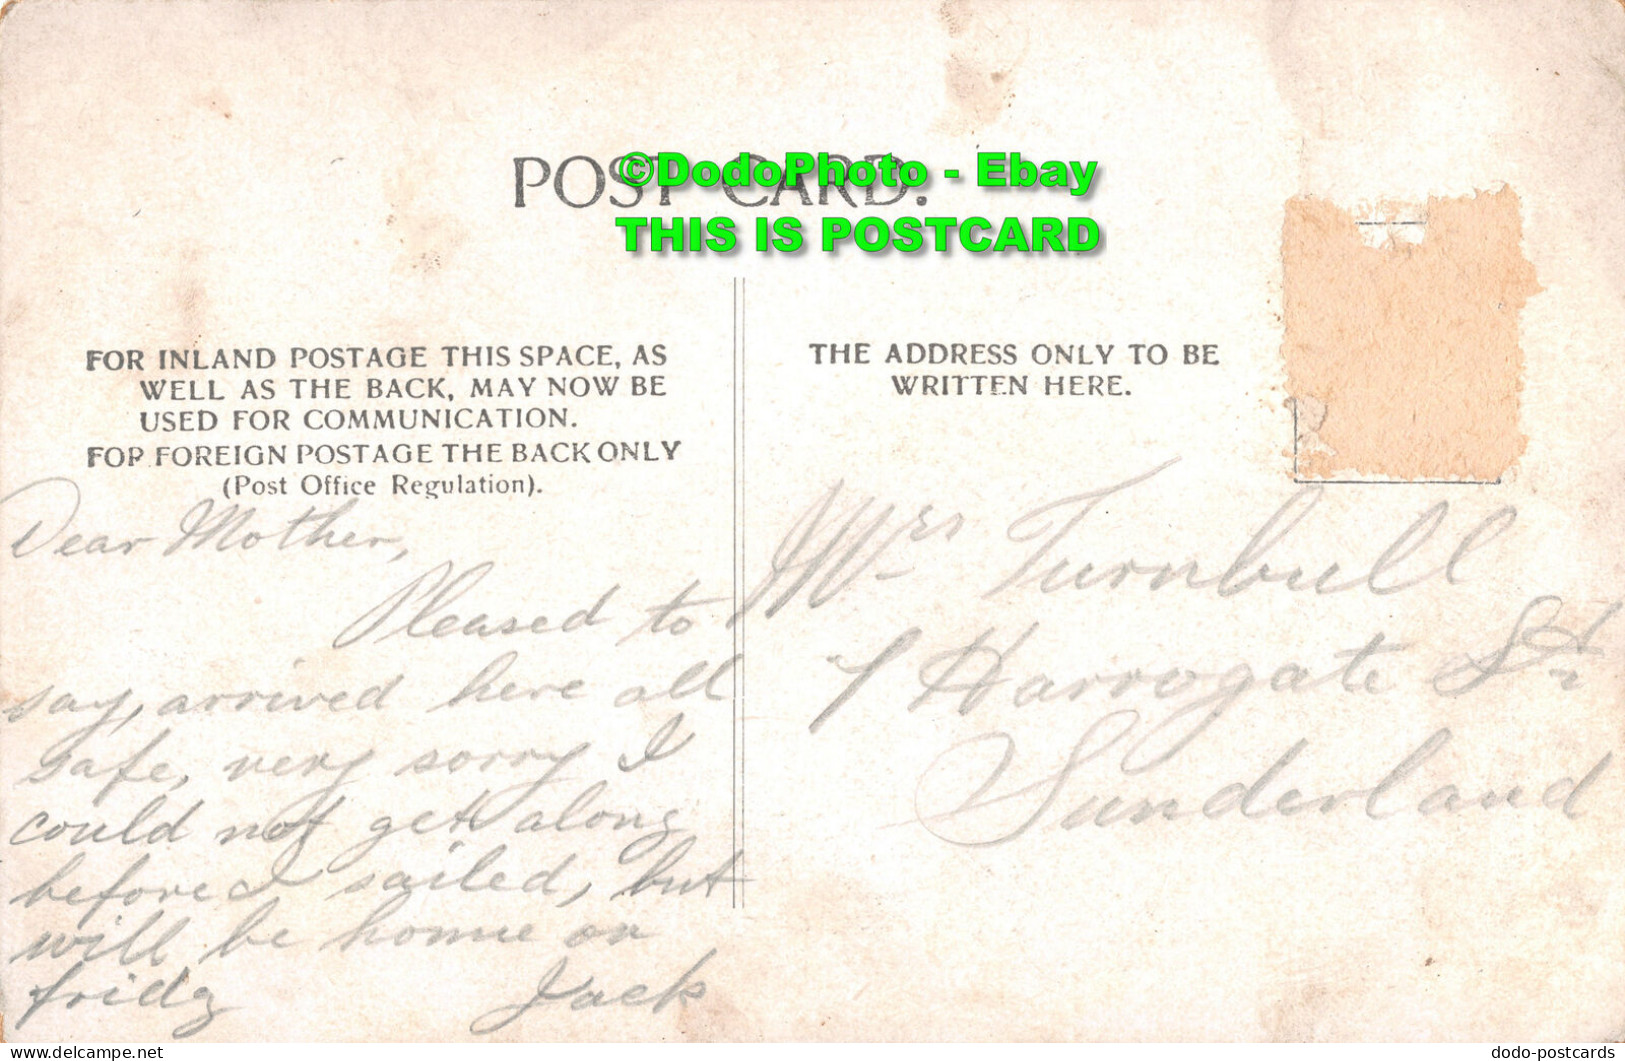 POST CARD.
©DodoPhoto - Ebay
THIS IS POSTCARD
FOR INLAND POSTAGE THIS SPACE, AS
WELL AS THE BACK, MAY NOW BE
USED FOR COMMUNICATION.
FOR FOREIGN POSTAGE THE BACK ONLY
(Post Office Regulation).
THE ADDRESS ONLY TO BE
WRITTEN HERE.
Dear Mother,
Pleased to
say, arrived here all
safe, very sorry I
could not get along
before I sailed, but
will be home on
fridy
Jack
Mrs Turnbull
1 Harrogate St
Sunderland
delcampe.net
dodo-postcards